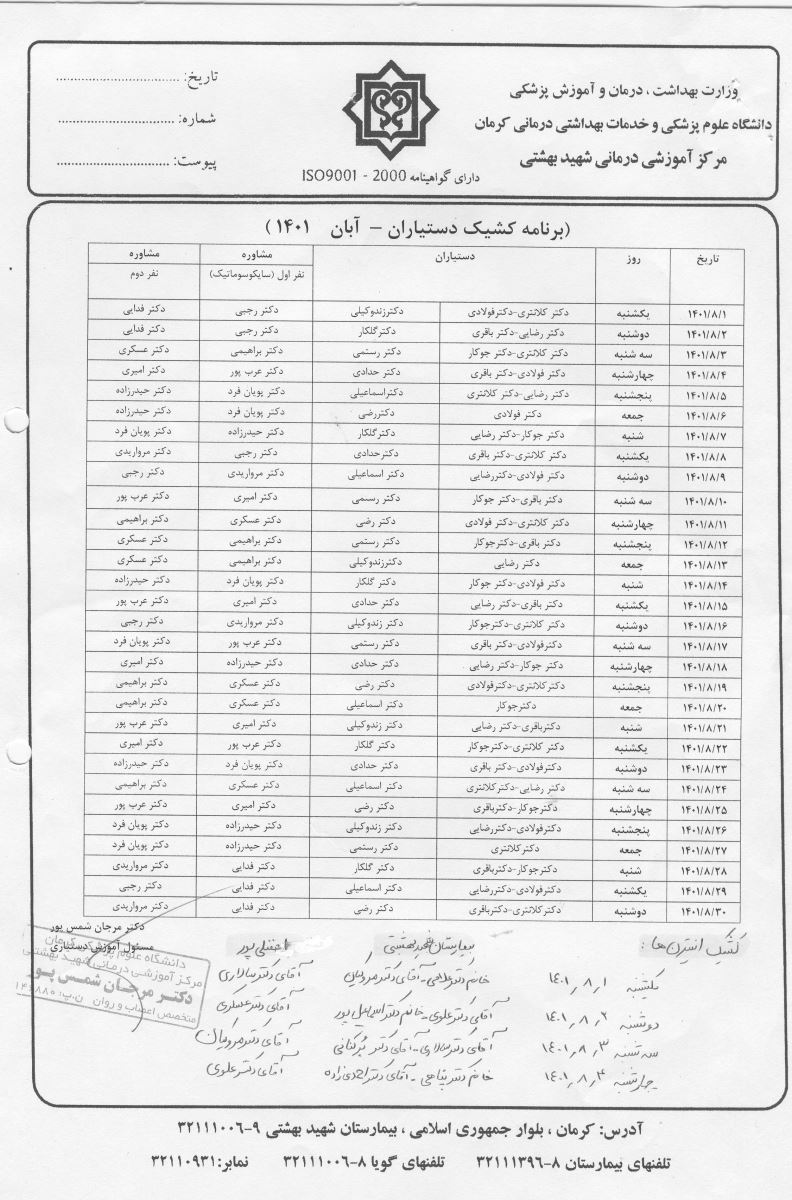 وزارت بهداشت ، درمان و آموزش پزشکی
دانشگاه علوم پزشکی و خدمات بهداشتی درمانی کرمان
مرکز آموزشی درمانی شهید بهشتی
دارای گواهینامه ISO9001 - 2000
تاریخ: ..................................
شماره: ................................
پیوست: ...............................
(برنامه کشیک دستیاران – آبان ۱۴۰۱ )
تاریخ روز دستیاران مشاوره مشاوره
نفر اول (سایکوسوماتیک) نفر دوم
۱۴۰۱/۸/۱ یکشنبه دکتر کلانتری-دکترفولادی دکترزندوکیلی دکتر رجبی دکتر فدایی
۱۴۰۱/۸/۲ دوشنبه دکتر رضایی-دکتر باقری دکترگلکار دکتر رجبی دکتر فدایی
۱۴۰۱/۸/۳ سه شنبه دکتر کلانتری-دکتر جوکار دکتر رستمی دکتر براهیمی دکتر عسکری
۱۴۰۱/۸/۴ چهارشنبه دکتر فولادی-دکتر باقری دکتر حدادی دکتر عرب پور دکتر امیری
۱۴۰۱/۸/۵ پنجشنبه دکتر رضایی-دکتر کلانتری دکتراسماعیلی دکتر پویان فرد دکتر حیدرزاده
۱۴۰۱/۸/۶ جمعه دکتر فولادی دکتررضی دکتر پویان فرد دکتر حیدرزاده
۱۴۰۱/۸/۷ شنبه دکتر جوکار-دکتر رضایی دکترگلکار دکتر حیدرزاده دکتر پویان فرد
۱۴۰۱/۸/۸ یکشنبه دکتر کلانتری-دکتر باقری دکترحدادی دکتر رجبی دکتر مرواریدی
۱۴۰۱/۸/۹ دوشنبه دکتر فولادی-دکتررضایی دکتر اسماعیلی دکتر مرواریدی دکتر رجبی
۱۴۰۱/۸/۱۰ سه شنبه دکتر باقری-دکتر جوکار دکتر رستمی دکتر امیری دکتر عرب پور
۱۴۰۱/۸/۱۱ چهارشنبه دکتر کلانتری-دکتر فولادی دکتر رضی دکتر عسکری دکتر براهیمی
۱۴۰۱/۸/۱۲ پنجشنبه دکتر باقری-دکترجوکار دکتر رستمی دکتر براهیمی دکتر عسکری
۱۴۰۱/۸/۱۳ جمعه دکتر رضایی دکترزندوکیلی دکتر براهیمی دکتر عسکری
۱۴۰۱/۸/۱۴ شنبه دکتر فولادی-دکتر جوکار دکتر گلکار دکتر پویان فرد دکتر حیدرزاده
۱۴۰۱/۸/۱۵ یکشنبه دکتر باقری-دکتر رضایی دکتر حدادی دکتر امیری دکتر عرب پور
۱۴۰۱/۸/۱۶ دوشنبه دکتر کلانتری-دکترجوکار دکتر زندوکیلی دکتر مرواریدی دکتر رجبی
۱۴۰۱/۸/۱۷ سه شنبه دکترفولادی-دکتر باقری دکتر رستمی دکتر عرب پور دکتر پویان فرد
۱۴۰۱/۸/۱۸ چهارشنبه دکتر جوکار-دکتر رضایی دکتر حدادی دکتر حیدرزاده دکتر امیری
۱۴۰۱/۸/۱۹ پنجشنبه دکترکلانتری-دکترفولادی دکتر رضی دکتر عسکری دکتر براهیمی
۱۴۰۱/۸/۲۰ جمعه دکترجوکار دکتر اسماعیلی دکتر عسکری دکتر براهیمی
۱۴۰۱/۸/۲۱ شنبه دکترباقری-دکتر رضایی دکتر زندوکیلی دکتر امیری دکتر عرب پور
۱۴۰۱/۸/۲۲ یکشنبه دکتر کلانتری-دکترجوکار دکتر گلکار دکتر عرب پور دکتر امیری
۱۴۰۱/۸/۲۳ دوشنبه دکترفولادی-دکتر باقری دکتر حدادی دکتر پویان فرد دکتر حیدرزاده
۱۴۰۱/۸/۲۴ سه شنبه دکتر رضایی-دکترکلانتری دکتر اسماعیلی دکتر عسکری دکتر براهیمی
۱۴۰۱/۸/۲۵ چهارشنبه دکترجوکار-دکترباقری دکتر رضی دکتر امیری دکتر عرب پور
۱۴۰۱/۸/۲۶ پنجشنبه دکترفولادی-دکتررضایی دکتر زندوکیلی دکتر حیدرزاده دکتر پویان فرد
۱۴۰۱/۸/۲۷ جمعه دکترکلانتری دکتر رستمی دکتر حیدرزاده دکتر پویان فرد
۱۴۰۱/۸/۲۸ شنبه دکترجوکار-دکترباقری دکتر گلکار دکتر فدایی دکتر مرواریدی
۱۴۰۱/۸/۲۹ یکشنبه دکترفولادی-دکتررضایی دکتر اسماعیلی دکتر فدایی دکتر رجبی
۱۴۰۱/۸/۳۰ دوشنبه دکترکلانتری-دکترباقری دکتر رضی دکتر فدایی دکتر مرواریدی
دکتر مرجان شمس پور
مسئول آموزش دستیاری
دانشگاه علوم پزشکی کرمان
مرکز آموزشی درمانی شهید بهشتی
دکتر مرجان شمس پور
متخصص اعصاب و روان ن.پ: ۱۴۶۸۸۰
کشیک انترن ها: بیمارستان شهید بهشتی افضلی پور
یکشنبه ۱۴۰۱٫۸٫۱ خانم دکتر - آقای دکتر آقای دکتر سالاری
دوشنبه ۱۴۰۱٫۸٫۲ آقای دکتر علوی - خانم دکتر اسماعیل پور آقای دکتر عسکری
سه شنبه ۱۴۰۱٫۸٫۳ آقای دکتر سالاری - آقای دکتر آقای دکتر
چهارشنبه ۱۴۰۱٫۸٫۴ خانم دکتر پناهی - آقای دکتر احدی زاده آقای دکتر علوی
آدرس: کرمان ، بلوار جمهوری اسلامی ، بیمارستان شهید بهشتی ۹-۳۲۱۱۱۰۰۶
تلفنهای بیمارستان ۸-۳۲۱۱۱۳۹۶ تلفنهای گویا ۸-۳۲۱۱۱۰۰۶ نمابر:۳۲۱۱۰۹۳۱